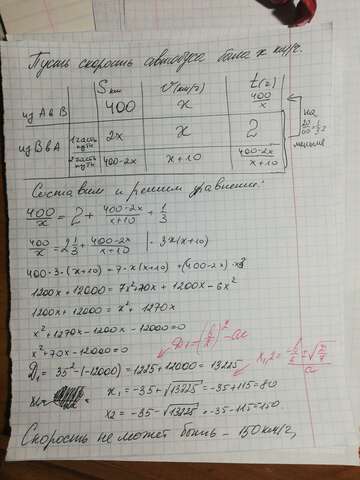 Пусть скорость автобуса была x км/г.
S км V(км/г) t(г)
из А в В 400 x 400/x
из В в А 1 часть пути 2x x 2
2 часть пути 400-2x x+10 400-2x/x+10
на 20/60 = 1/3 г меньше
Составим и решим уравнение:
400/x = 2 + 400-2x/x+10 + 1/3
400/x = 2 1/3 + 400-2x/x+10 | · 3x(x+10)
400·3·(x+10) = 7·x(x+10) + (400-2x)·x3
1200x + 12000 = 7x² + 70x + 1200x - 6x²
1200x + 12000 = x² + 1270x
x² + 1270x - 1200x - 12000 = 0
x² + 70x - 12000 = 0
D₁ = (b/2)² - ac
D₁ = 35² - (-12000) = 1225 + 12000 = 13225
x₁,₂ = -b/2 ± √D/4 / a
x₁ = -35 + √13225 = -35 + 115 = 80
x₂ = -35 - √13225 = -35 - 115 = -150.
Скорость не может быть - 150 км/г,